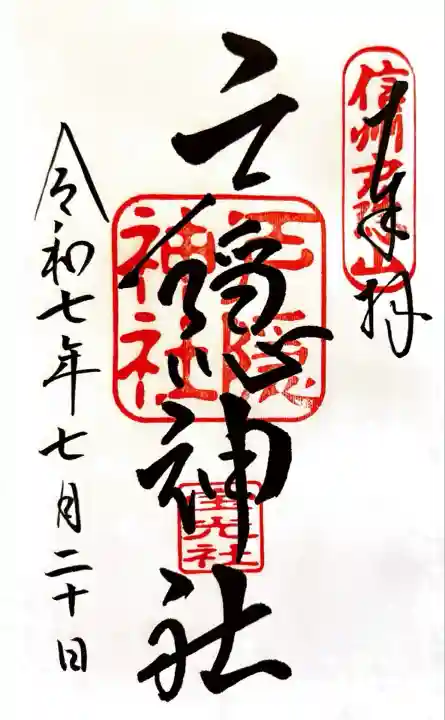 奉拝
信州戸隠山
戸隠神社
戸隠
神社
宝光社
令和七年七月二十日